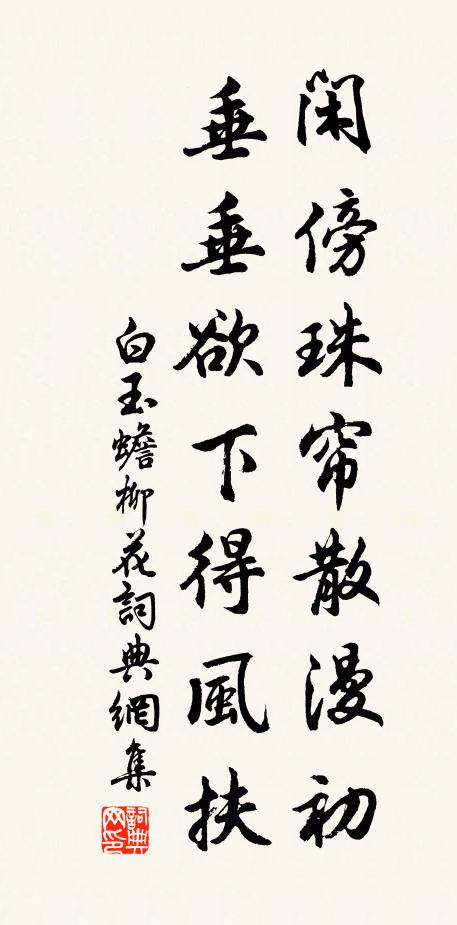 閑傍珠帘散漫初
垂垂欲下得風扶
白玉蟾柳花詞典網集
詞典网印